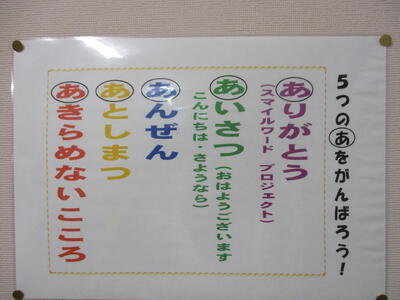 ５つのあをがんばろう！
ありがとう
（スマイルワード　プロジェクト）
あいさつ（おはようございます
こんにちは・さようなら）
あんぜん
あとしまつ
あきらめないこころ